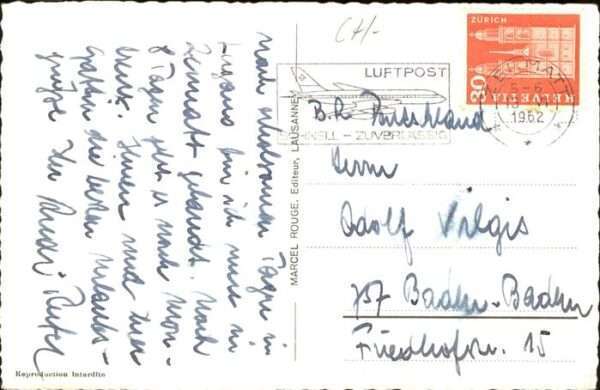 Nach Tagen in
Lugano bin ich nun in
Zermatt gelandet. Nach
8 Tagen geht es nach Mon-
treux. Ihnen und Ihrer
Gattin die besten Urlaubs-
grüße Ihr
Reproduction Interdite
MARCEL ROUGE, Editeur, LAUSANNE
CH/-
LUFTPOST
SCHNELL - ZUVERLÄSSIG
ZÜRICH
HELVETIA
ZERMATT
5-6
1962
B.R. Deutschland
Herrn
Adolf Vilgis
757 Baden-Baden
Friedhofstr. 15